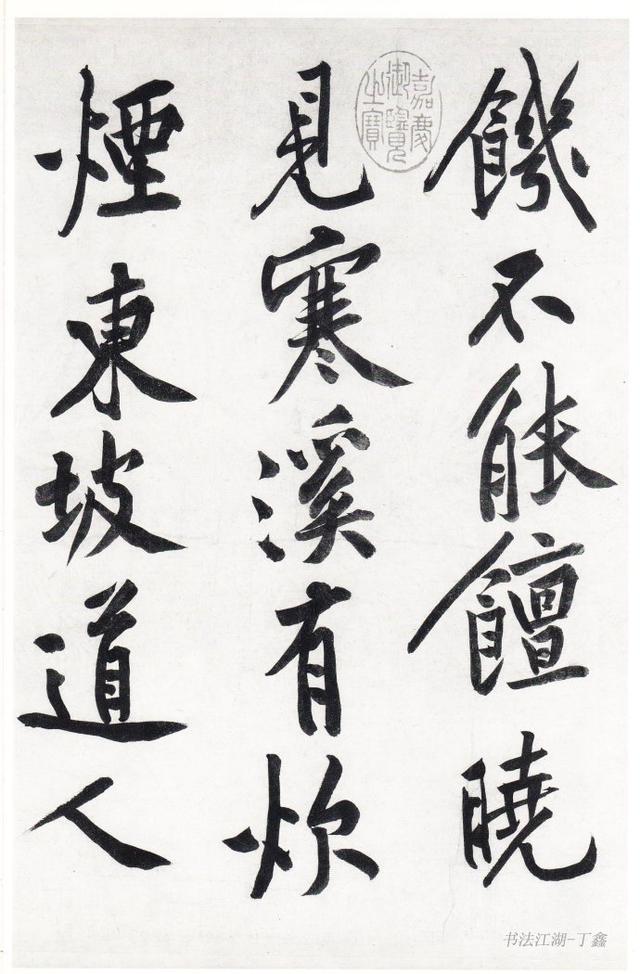 饑不能饘曉
見寒溪有炊
煙東坡道人
嘉慶御覽之寶
书法江湖-丁鑫